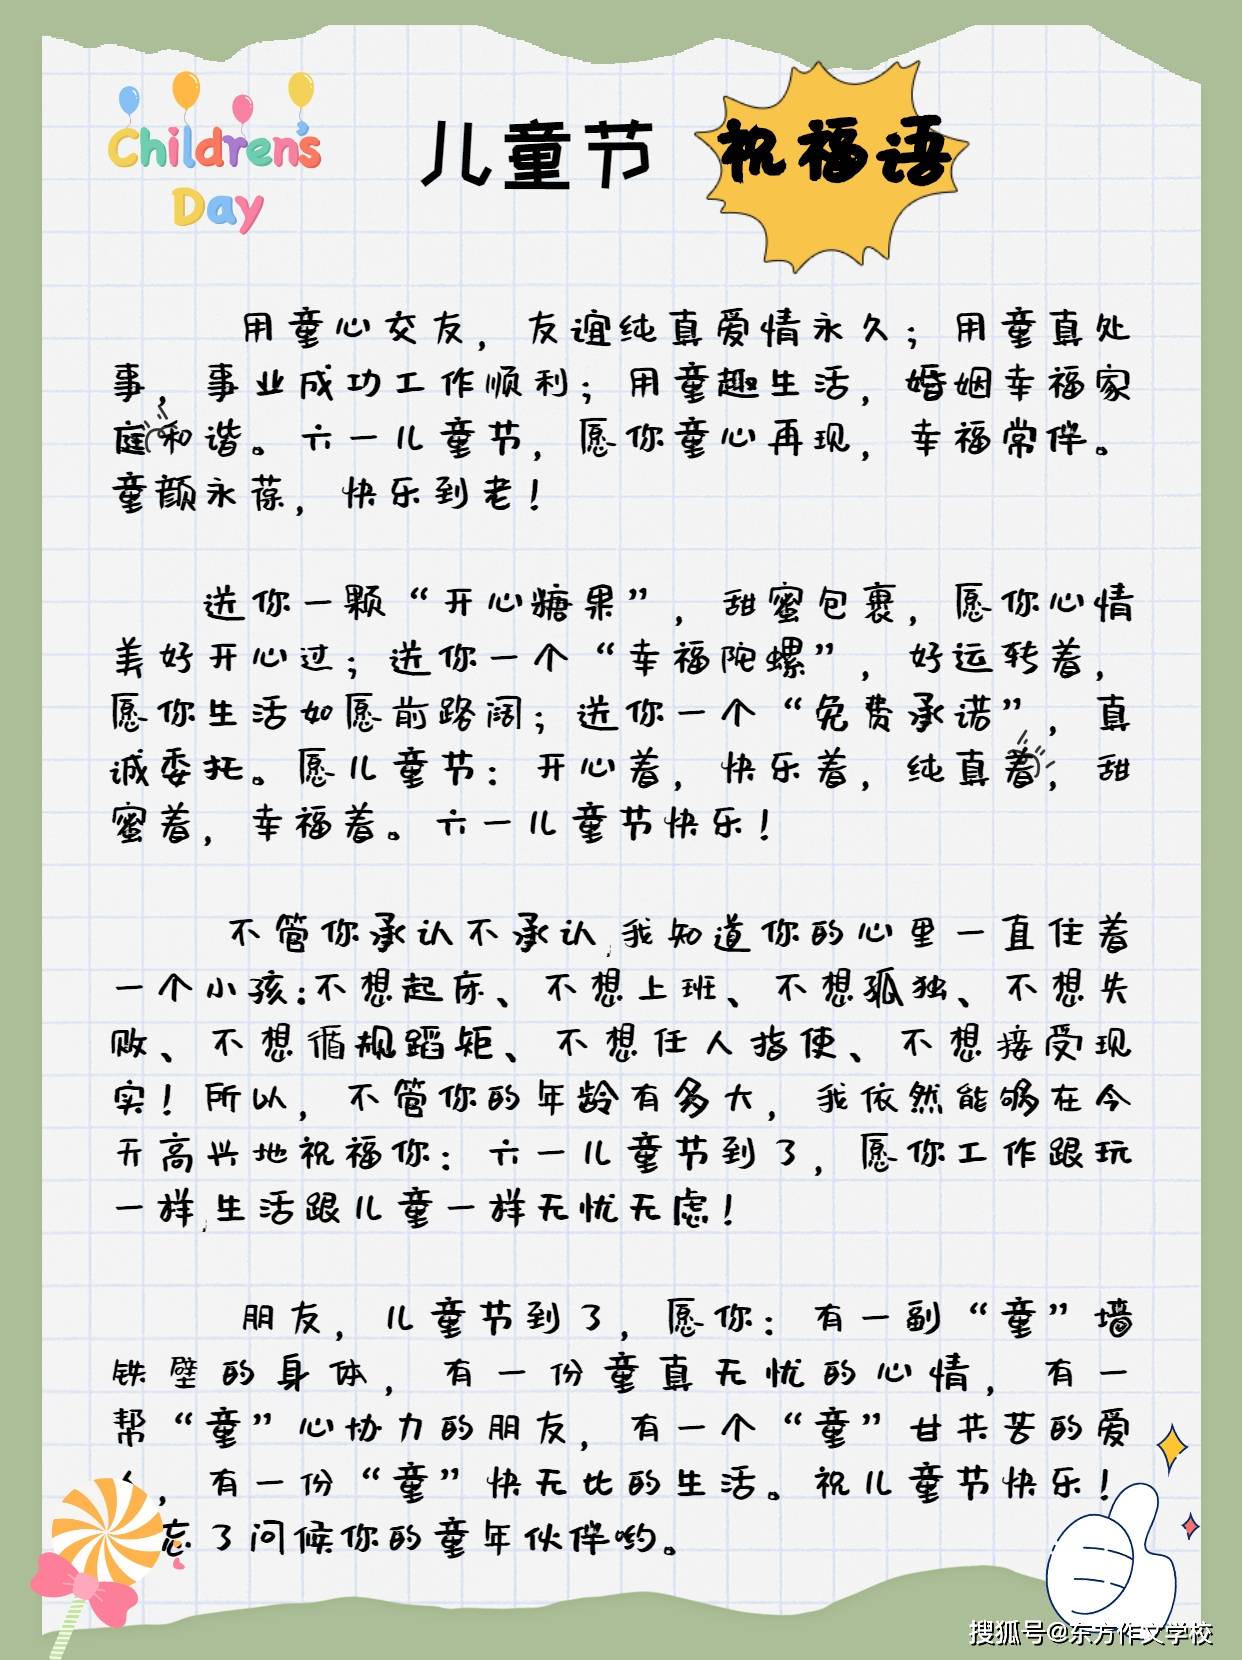 Children's
Day
儿童节 祝福语
用童心交友，友谊纯真爱情永久；用童真处
事，事业成功工作顺利；用童趣生活，婚姻幸福家
庭和谐。六一儿童节，愿你童心再现，幸福常伴。
童颜永葆，快乐到老！
送你一颗“开心糖果”，甜蜜包裹，愿你心情
美好开心过；送你一个“幸福陀螺”，好运转着，
愿你生活如愿前路阔；送你一个“免费承诺”，真
诚委托。愿儿童节：开心着，快乐着，纯真着，甜
蜜着，幸福着。六一儿童节快乐！
不管你承认不承认,我知道你的心里一直住着
一个小孩:不想起床、不想上班、不想孤独、不想失
败、不想循规蹈矩、不想任人指使、不想接受现
实！所以，不管你的年龄有多大，我依然能够在今
天高兴地祝福你：六一儿童节到了，愿你工作跟玩
一样,生活跟儿童一样无忧无虑！
朋友，儿童节到了，愿你：有一副“童”墙
铁壁的身体，有一份童真无忧的心情，有一
帮“童”心协力的朋友，有一个“童”甘共苦的爱
，有一份“童”快无比的生活。祝儿童节快乐！
忘了问候你的童年伙伴哟。
搜狐号@东方作文学校